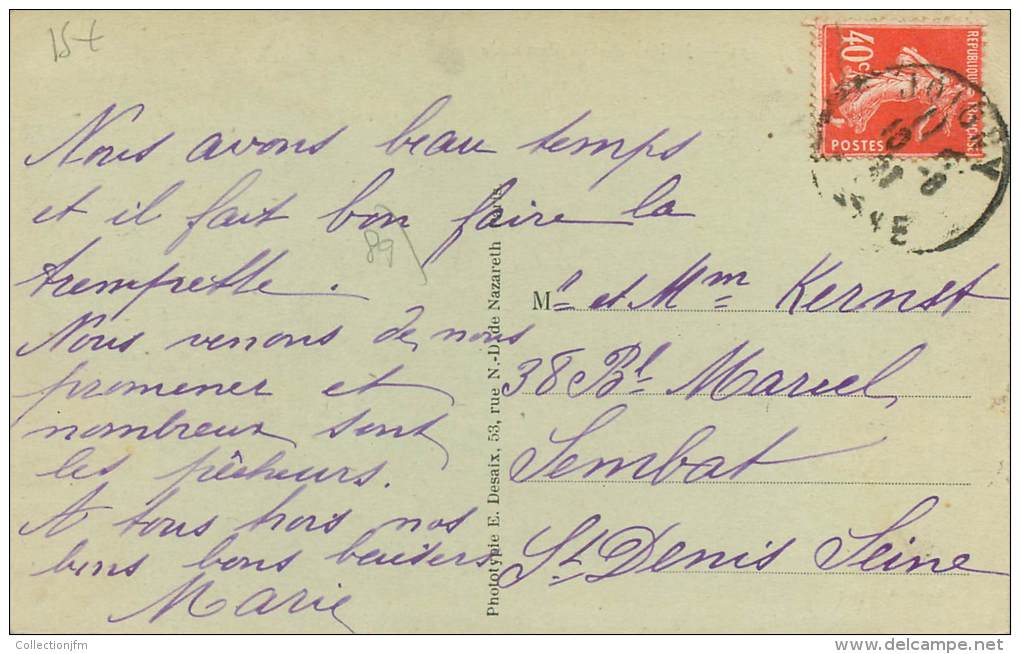 15+
Nous avons beau temps
et il fait bon faire la
trempette.
Nous venons de nous
promener et
nombreux sont
les pêcheurs.
A tous trois nos
bons bons baisers
Marie
89
Phototypie E. Desaix, 53, rue N.-D. de Nazareth Paris
REPUBLIQUE FRANÇAISE
40c
POSTES
JOIGNY
YONNE
Mr et Mme Kernst
38 Bd Marcel
Sembat
St Denis Seine
Collectionjfm
delcampe.net